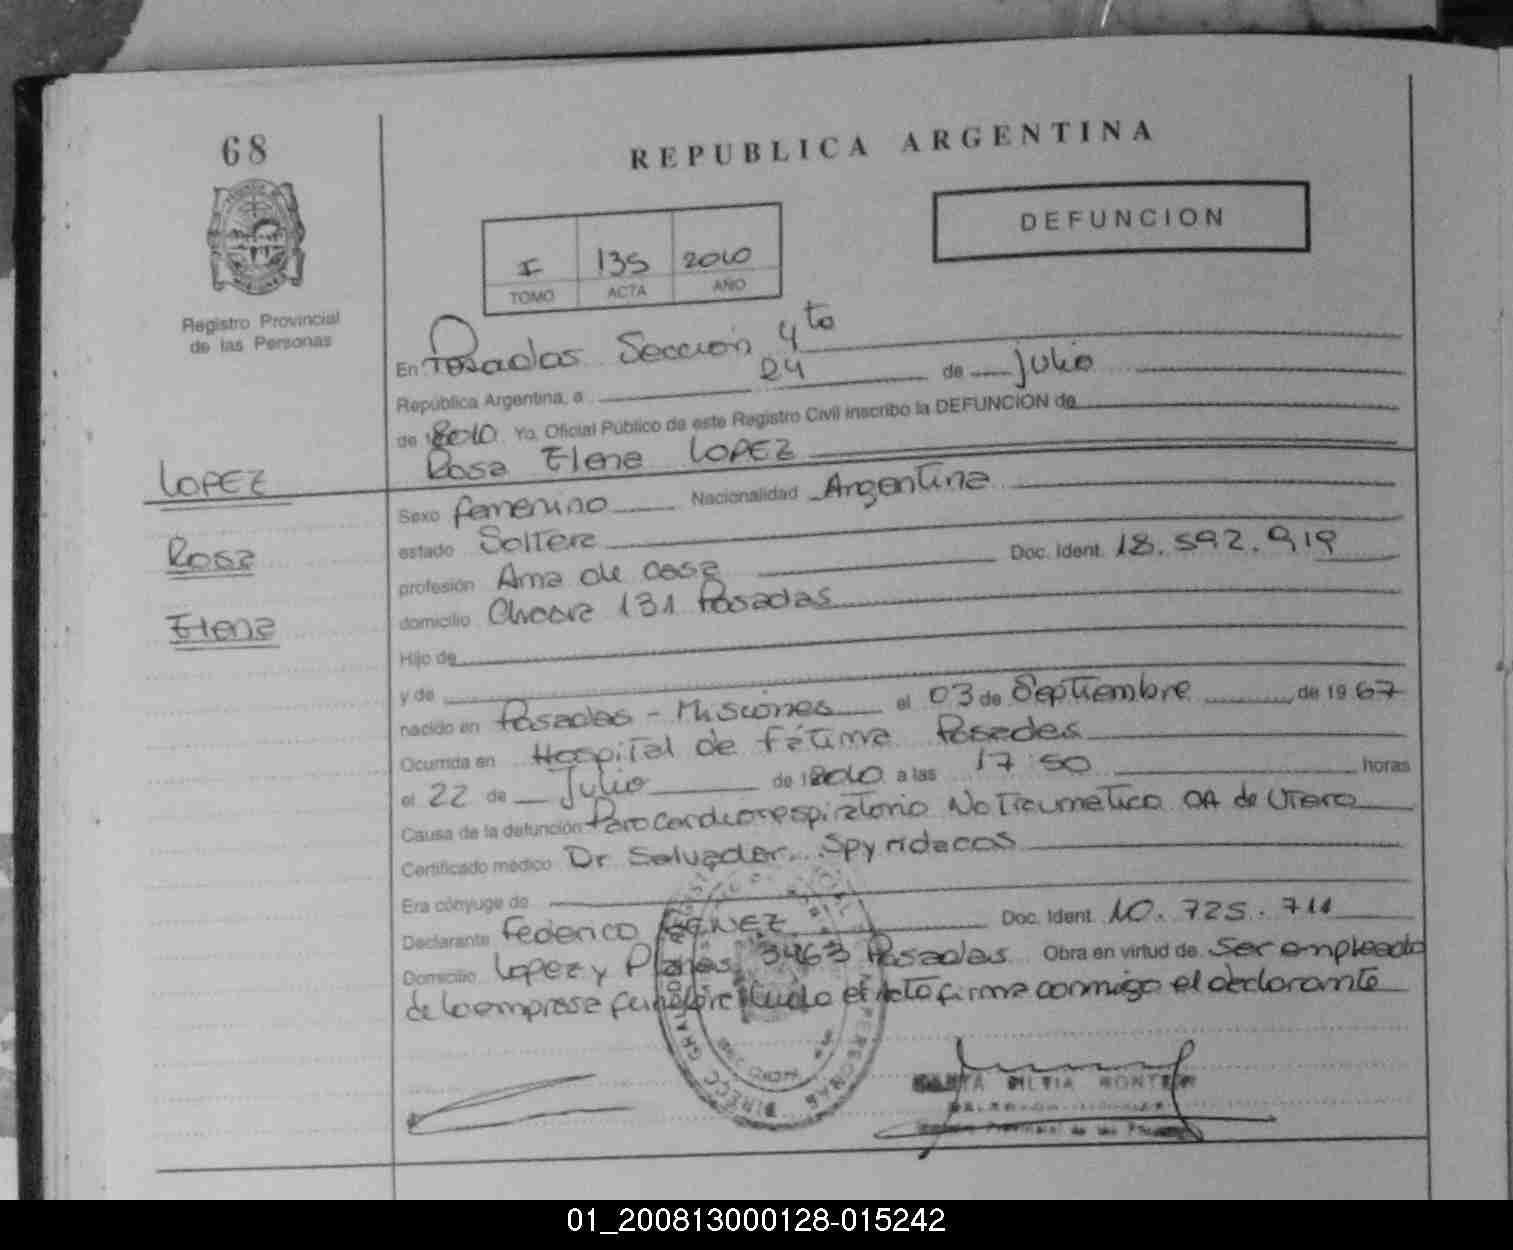 68
REPUBLICA ARGENTINA
DEFUNCION
I 135 2010
TOMO ACTA AÑO
Registro Provincial
de las Personas
En Posadas Sección 4to
República Argentina, a 24 de Julio
de 2010 Yo, Oficial Público de este Registro Civil inscribo la DEFUNCION de
Rosa Elena LOPEZ
LOPEZ
Rosa
Elena
Sexo femenino Nacionalidad Argentina
estado Soltera
profesión Ama de casa Doc. Ident. 18.592.919
domicilio 131 Posadas
Hijo de
y de
nacido en Posadas - Misiones el 03 de Septiembre de 1967
Ocurrida en Hospital de Fátima Posadas
el 22 de Julio de 2010 a las 17:50 horas
Causa de la defunción Paro cardiorespiratorio No Traumatico CA de Utero
Certificado médico Dr Salvador Spyridacos
Era cónyuge de
Declarante Federico Doc. Ident. 10.725.711
Domicilio Lopez y Planes 3463 Posadas Obra en virtud de Ser empleado
de la empresa funebre Leido el Acto firma conmigo el declarante
DIRECC GRAL PERSONAS
01_200813000128-015242